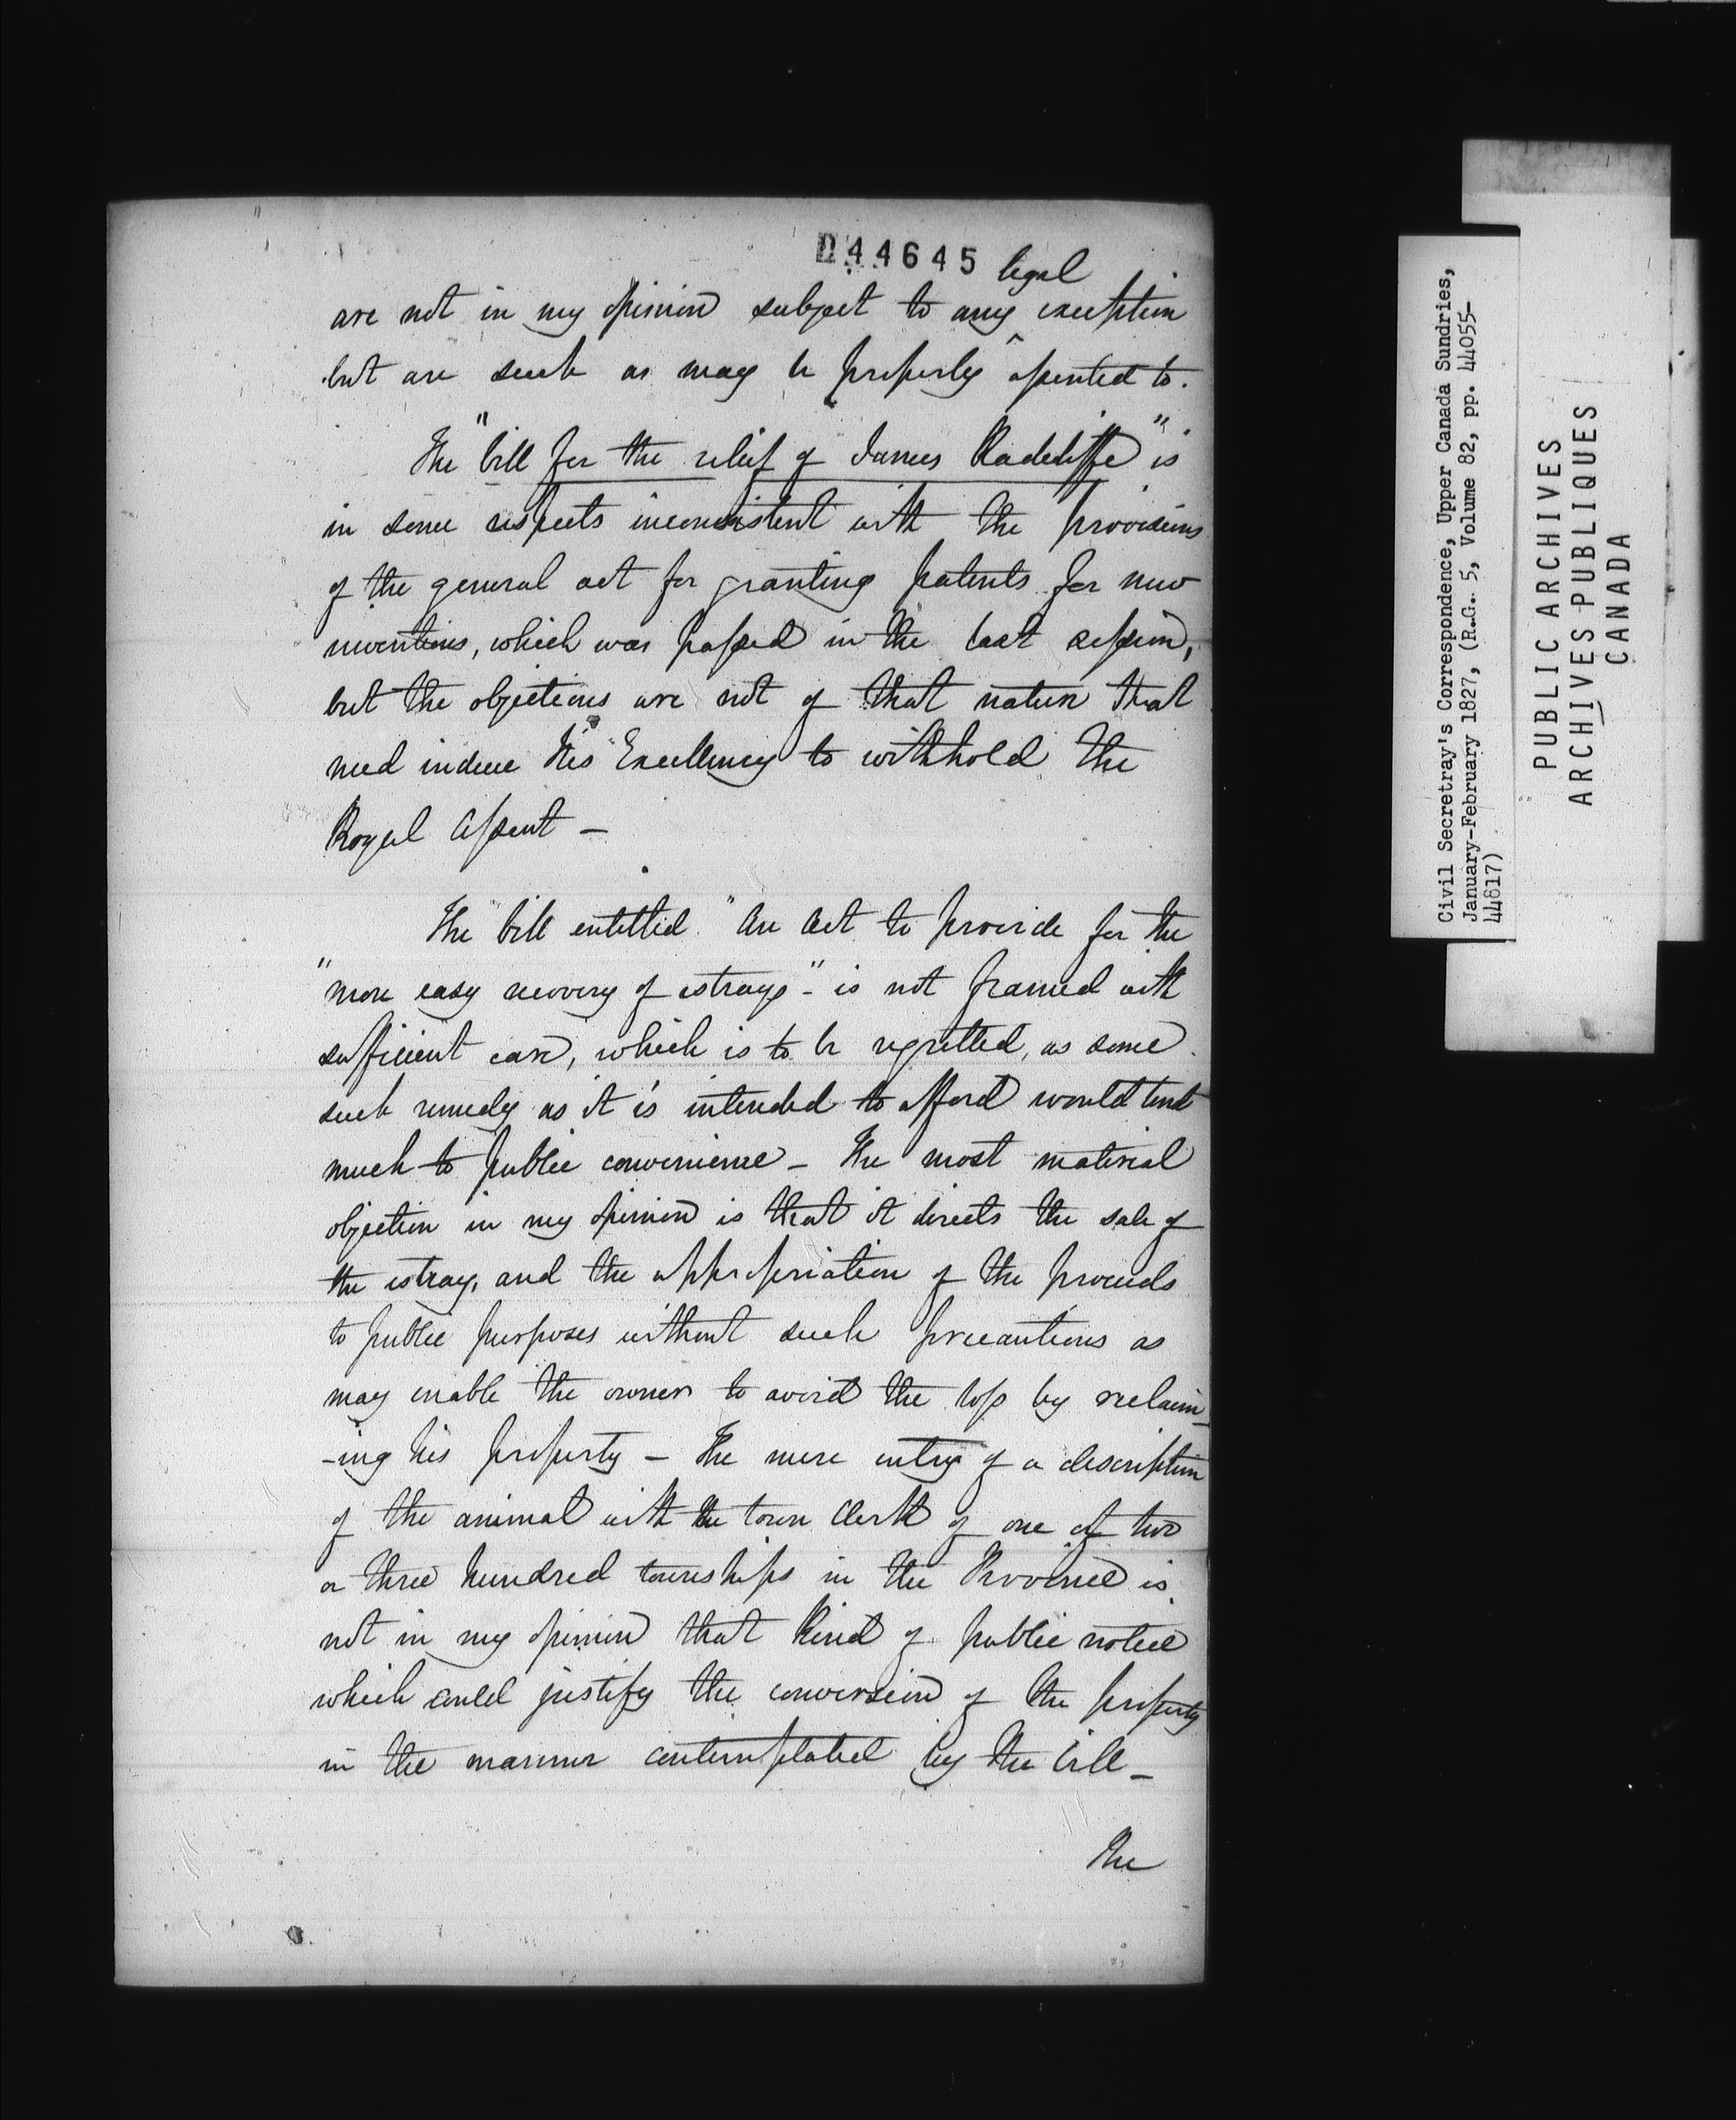 044645
legal
are not in my opinion subject to any ^ exception
but are such as may be properly assented to.
The "bill for the relief of James Radcliffe" is
in some respects inconsistent with the provisions
of the general act for granting patents for new
inventions, which was passed in the last session,
but the objections are not of that nature that
need induce His Excellency to withhold the
Royal Assent —
The bill entitled "An Act to provide for the
"more easy recovery of estrays" - is not framed with
sufficient care, which is to be regretted, as some
such remedy as it is intended to afford would tend
much to public convenience — The most material
objection in my opinion is that it directs the sale of
the estray, and the appropriation of the proceeds
to public purposes without such precautions as
may enable the owner to avoid the loss by reclaim-
-ing his property — The mere entry of a description
of the animal with the town Clerk of one of two
or three hundred townships in the Province is
not in my opinion that kind of public notice
which could justify the conversion of the property
in the manner contemplated by the bill —
The
Civil Secretray's Correspondence, Upper Canada Sundries,
January-February 1827, (R.G. 5, Volume 82, pp. 44055-
44817)
PUBLIC ARCHIVES
ARCHIVES PUBLIQUES
CANADA